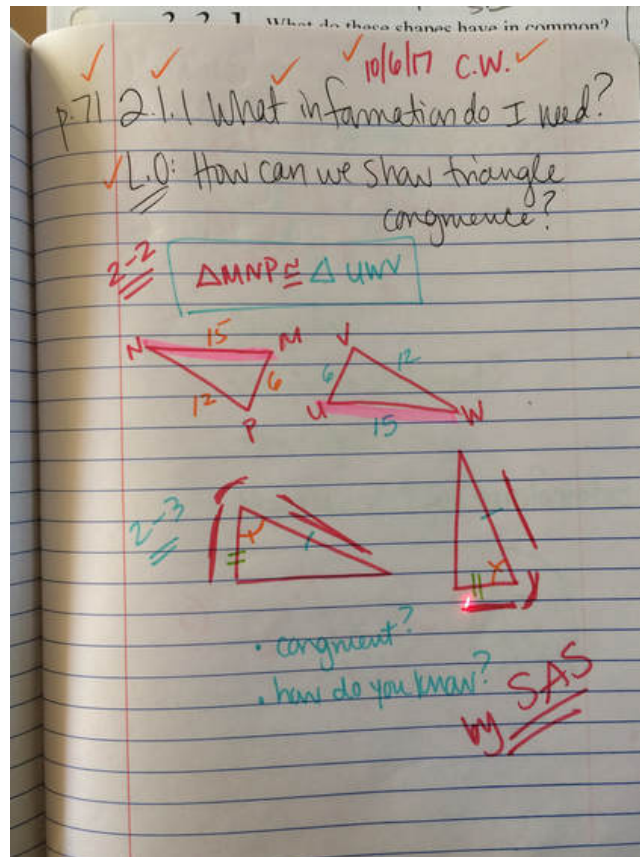 2.2.1 What do these shapes have in common?
10/6/17 C.W.
p.71 2.1.1 What information do I need?
L.O: How can we show triangle
congruence?
2-2 △MNP ≅ △UWV
15
N M V
6 6 12
12
P U W
15
2-3
• congruent?
• how do you know?
by SAS